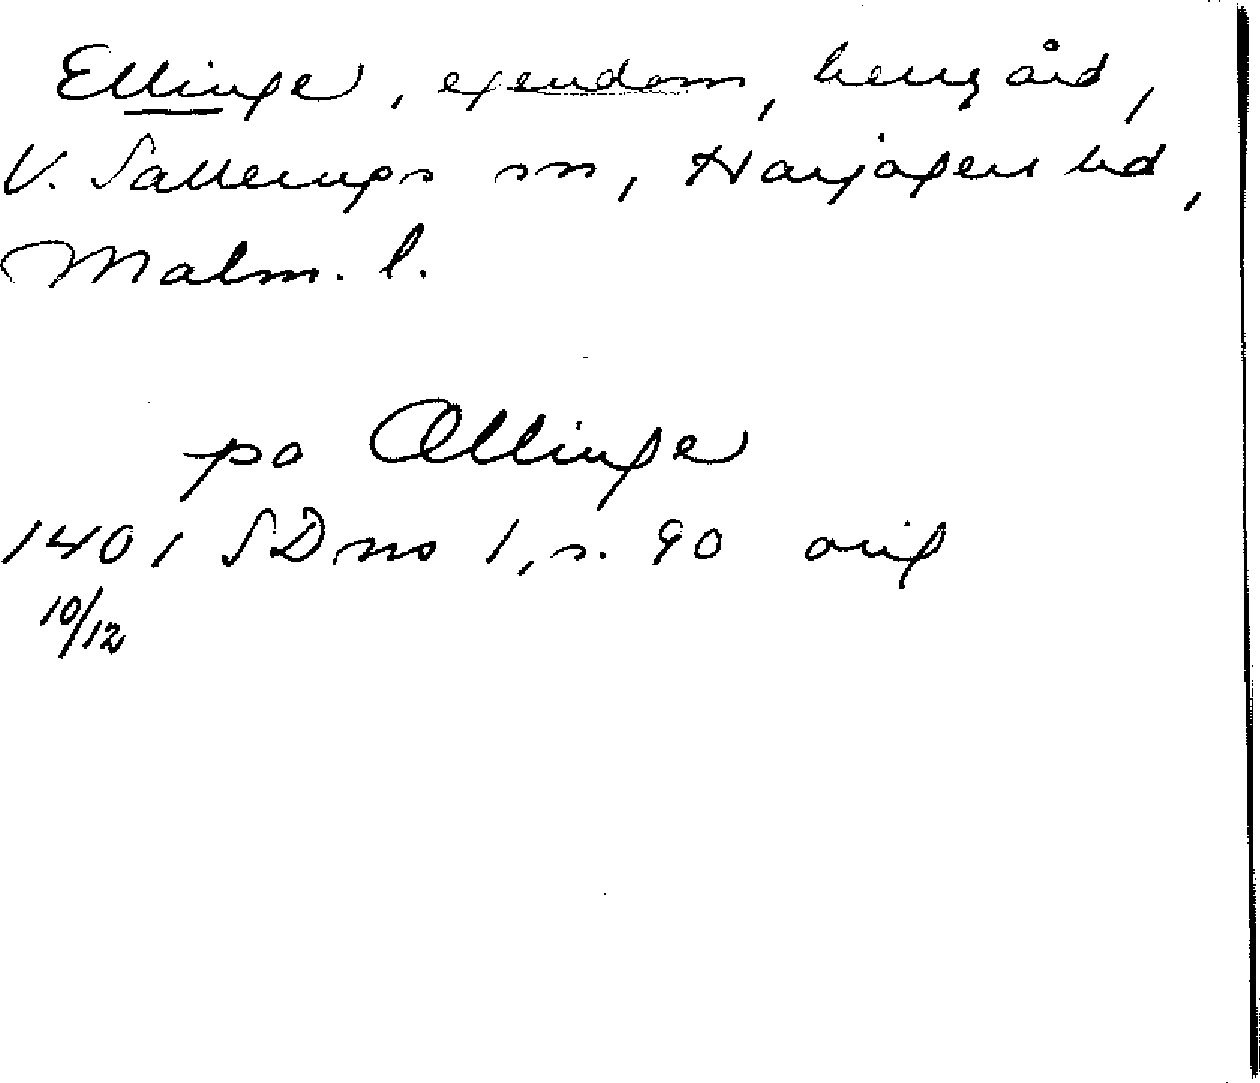 Ellinge, egendom, herrgård,
V. Sallerups sn, Harjagers hd,
Malm. l.
pa Ællinge
1401 SD no 1, s. 90 orig
10/12